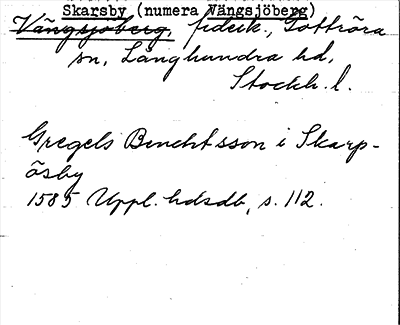 Skarsby (numera Vängsjöberg)
Vängsjöberg, fideik., Gottröra
sn, Långhundra hd,
Stockh. l.
Gregels Benchtsson i Skarp-
åsby
1585 Uppl. hdsdb, s. 112.